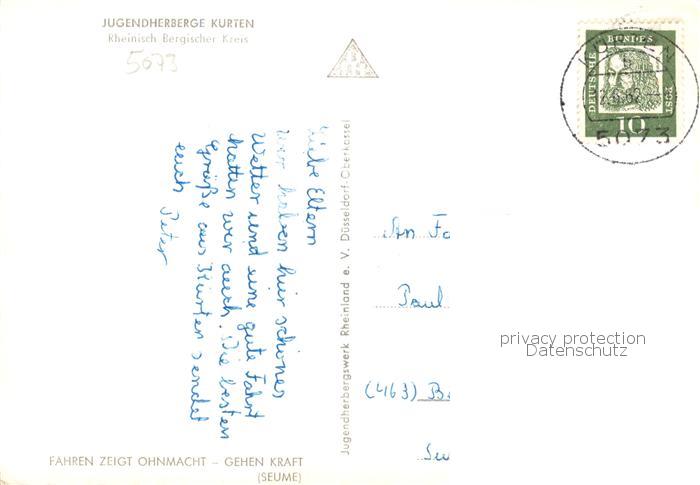 JUGENDHERBERGE KÜRTEN
Rheinisch Bergischer Kreis
5073
Liebe Eltern
wir haben hier schönes
Wetter und eine gute Fahrt
hatten wir auch. Die besten
Grüße aus Kürten sendet
euch Peter
Jugendherbergswerk Rheinland e. V. Düsseldorf-Oberkassel
FAHREN ZEIGT OHNMACHT – GEHEN KRAFT
(SEUME)
DEUTSCHE BUNDESPOST
10
5073
An Fa
Paul
(463)
privacy protection
Datenschutz